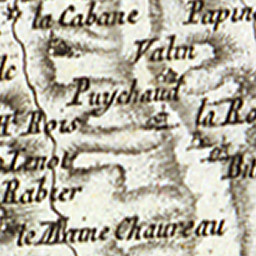 la Cabane
Papin
Valin
Puychaud
la Ro
Rois
Rabier
le Maine Chaureau